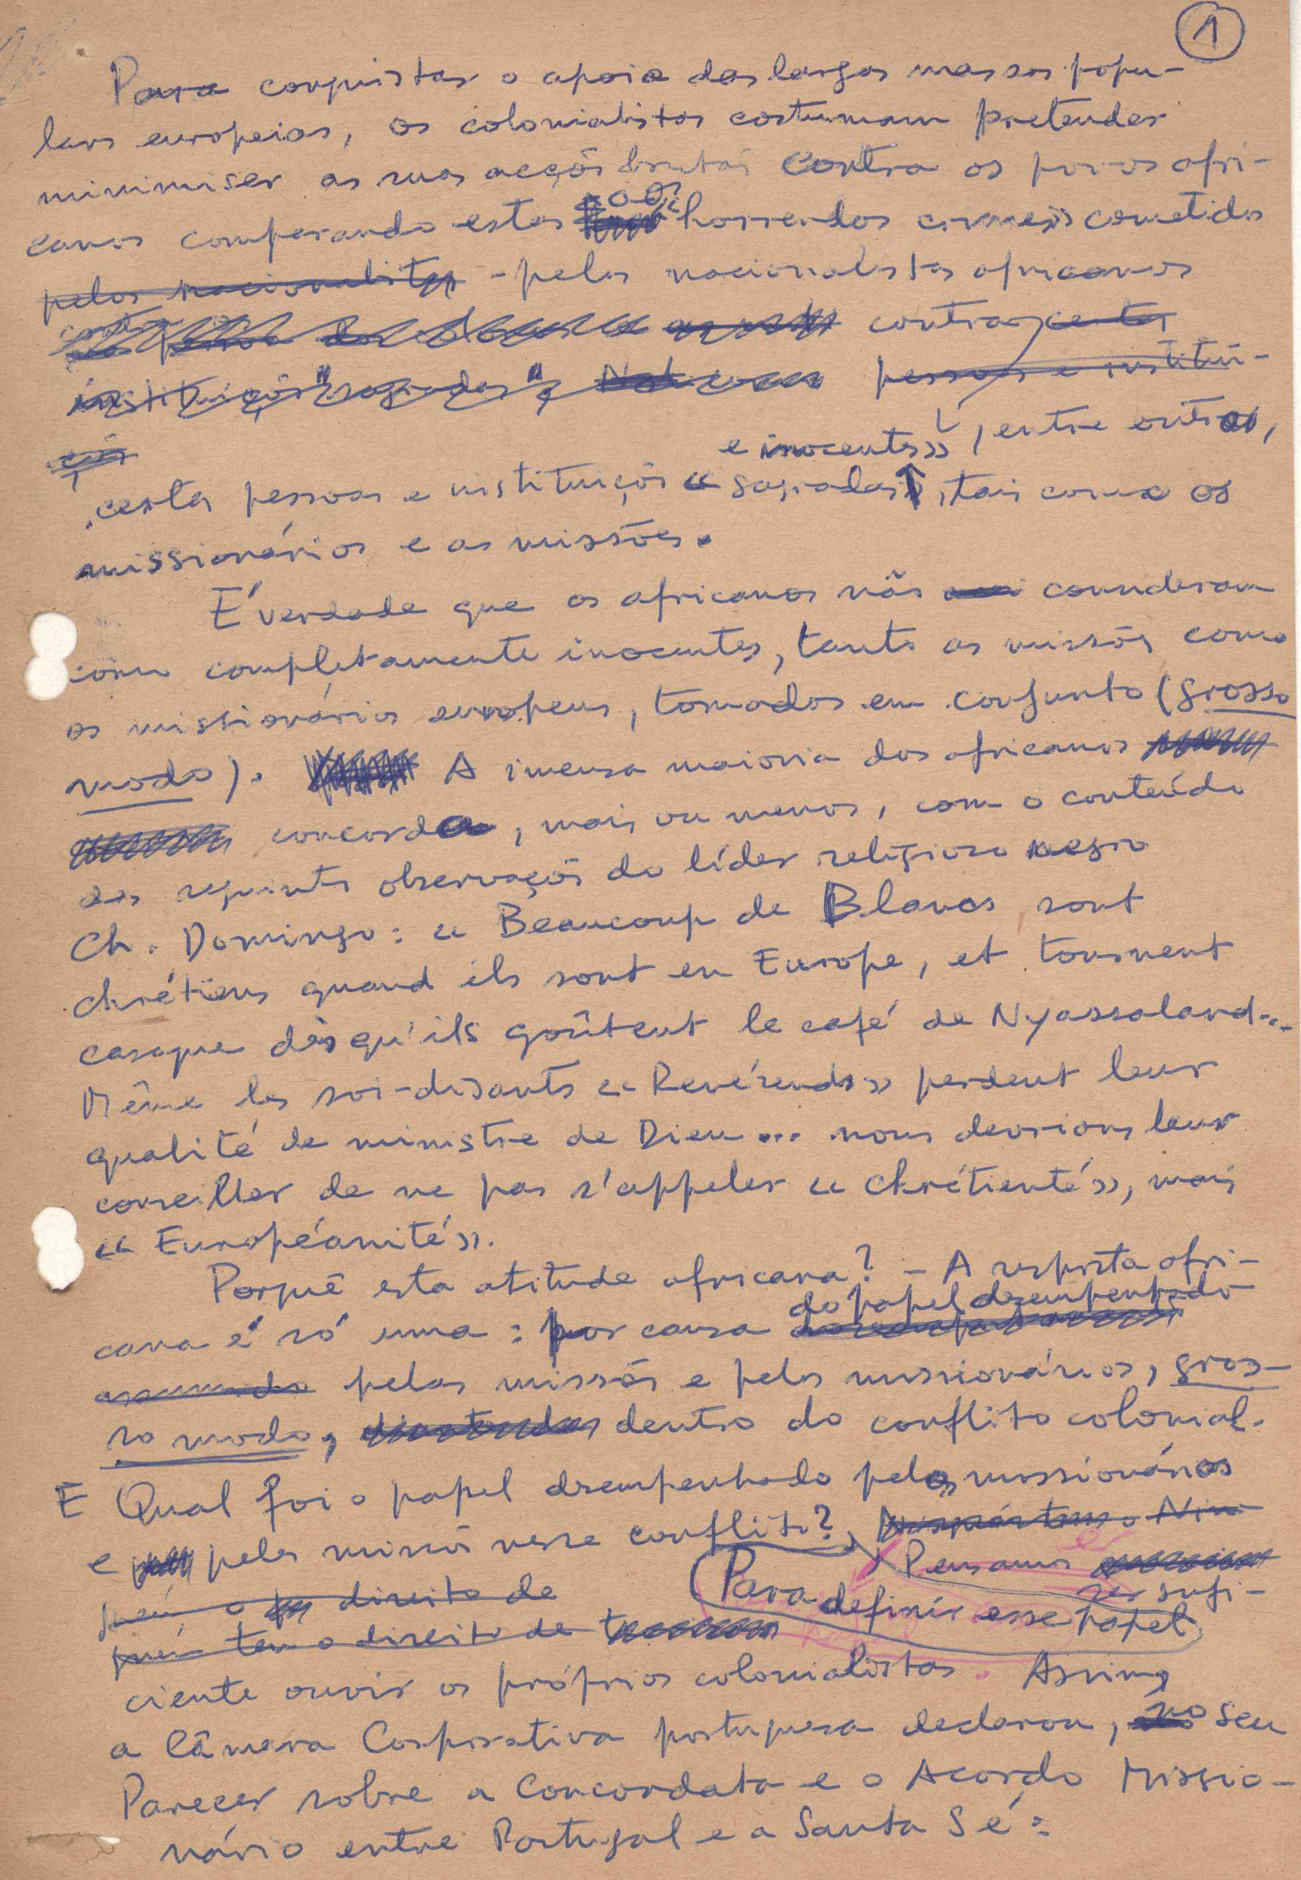 1
Para conquistar o apoio das largas massas popu-
lares europeias, os colonialistas costumam pretender
minimiser as suas acções brutais contra os povos afri-
canos comparando estes aos «horrendos crimes» cometidos
pelos nacionalistas - pelos nacionalistas africanos
contra certas
instituições "sagradas", pessoas e institui-
ções
e inocentes», entre outras,
certas pessoas e instituições «sagradas, tais como os
missionários e as missões.
É verdade que os africanos não consideram
como completamente inocentes, tanto as missões como
os missionários europeus, tomados em conjunto (grosso
modo). A imensa maioria dos africanos
concorda, mais ou menos, com o conteúdo
das seguintes observações do líder religioso negro
Ch. Domingo: «Beaucoup de Blancs sont
chrétiens quand ils sont en Europe, et tournent
casaque dès qu'ils goûtent le café de Nyassaland...
Même les soi-disants «Revérends» perdent leur
qualité de ministre de Dieu... nous devrions leur
conseiller de ne pas s'appeler «chrétienté», mais
«Européanité».
Porquê esta atitude africana? - A resposta afri-
do papel desempenhado
cana é só uma: por causa
assumido pelas missões e pelos missionários, gros-
so modo, dentro do conflito colonial.
E Qual foi o papel desempenhado pelos missionários
e pelas missões nesse conflito?
Pensamos
ser sufi-
Para definir esse papel
o direito de
quem tem o direito de
ciente ouvir os próprios colonialistas. Assim,
a Câmara Corporativa portuguesa declarou, no seu
Parecer sobre a Concordata e o Acordo Missio-
nário entre Portugal e a Santa Sé: